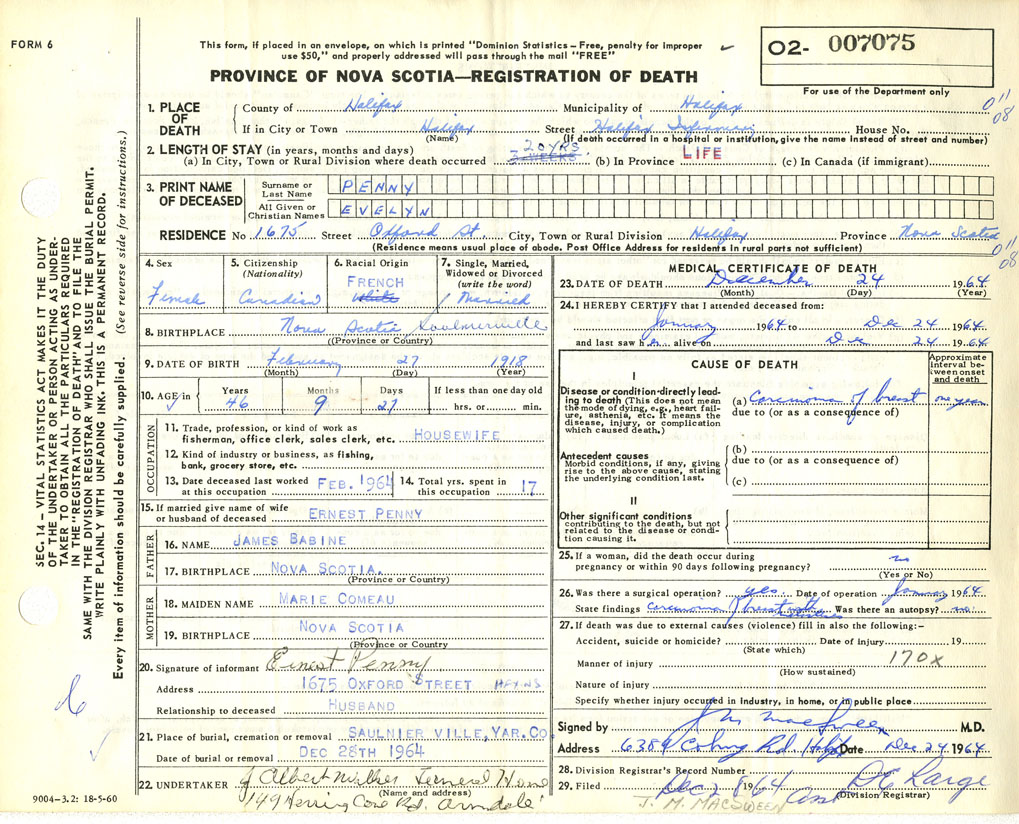 FORM 6
This form, if placed in an envelope, on which is printed "Dominion Statistics – Free, penalty for improper
use $50," and properly addressed will pass through the mail "FREE"
O2- 007075
For use of the Department only
PROVINCE OF NOVA SCOTIA—REGISTRATION OF DEATH
011
08
1. PLACE OF DEATH
County of Halifax Municipality of Halifax
If in City or Town Halifax Street Halifax Infirmary House No.
(Name) (If death occurred in a hospital or institution, give the name instead of street and number)
2. LENGTH OF STAY (in years, months and days)
20 YRS
(a) In City, Town or Rural Division where death occurred 3 WEEKS (b) In Province LIFE (c) In Canada (if immigrant)
3. PRINT NAME OF DECEASED
Surname or Last Name PENNY
All Given or Christian Names EVELYN
RESIDENCE No 1675 Street Oxford St City, Town or Rural Division Halifax Province Nova Scotia
(Residence means usual place of abode. Post Office Address for residents in rural parts not sufficient)
011
08
4. Sex
Female
5. Citizenship
(Nationality)
Canadian
6. Racial Origin
FRENCH
White
7. Single, Married,
Widowed or Divorced
(write the word)
Married
8. BIRTHPLACE Nova Scotia
((Province or Country)
9. DATE OF BIRTH February 27 1918
(Month) (Day) (Year)
10. AGE in Years Months Days If less than one day old
46 9 27 hrs. or min.
OCCUPATION
11. Trade, profession, or kind of work as
fisherman, office clerk, sales clerk, etc. HOUSEWIFE
12. Kind of industry or business, as fishing,
bank, grocery store, etc.
13. Date deceased last worked
at this occupation FEB. 1964
14. Total yrs. spent in
this occupation 17
15. If married give name of wife
or husband of deceased ERNEST PENNY
FATHER
16. NAME JAMES BABINE
17. BIRTHPLACE NOVA SCOTIA.
(Province or Country)
MOTHER
18. MAIDEN NAME MARIE COMEAU
19. BIRTHPLACE NOVA SCOTIA
(Province or Country)
20. Signature of informant Ernest Penny
Address 1675 OXFORD STREET HFX NS
Relationship to deceased HUSBAND
21. Place of burial, cremation or removal SAULNIERVILLE, YAR. CO.
Date of burial or removal DEC 28TH 1964
22. UNDERTAKER J Albert Walker Funeral Home
(Name and address)
149 Herring Cove Rd. Armdale
MEDICAL CERTIFICATE OF DEATH
23. DATE OF DEATH December 24 1964
(Month) (Day) (Year)
24. I HEREBY CERTIFY that I attended deceased from:
January 1964 to Dec 24 1964
and last saw her alive on Dec 24 1964
CAUSE OF DEATH
Approximate
interval be-
tween onset
and death
I
Disease or condition directly lead-
ing to death (This does not mean
the mode of dying, e.g., heart fail-
ure, asthenia, etc. It means the
disease, injury, or complication
which caused death.)
(a) Carcinoma of breast one year
due to (or as a consequence of)
Antecedent causes
Morbid conditions, if any, giving
rise to the above cause, stating
the underlying condition last.
(b)
due to (or as a consequence of)
(c)
II
Other significant conditions
contributing to the death, but not
related to the disease or condi-
tion causing it.
25. If a woman, did the death occur during
pregnancy or within 90 days following pregnancy? no
(Yes or No)
26. Was there a surgical operation? yes Date of operation January 1964
State findings Carcinoma of breast with Was there an autopsy? no
27. If death was due to external causes (violence) fill in also the following:–
Accident, suicide or homicide? Date of injury 19
(State which)
Manner of injury 170X
(How sustained)
Nature of injury
Specify whether injury occurred in Industry, in home, or in public place
Signed by J M MacSween M.D.
Address 6389 Coburg Rd Hfx Date Dec 24 1964
28. Division Registrar's Record Number
29. Filed Dec 28 1964 Asst D E Large
(Division Registrar)
J. M. MACSWEEN
9004–3.2: 18-5-60
SEC. 14 – VITAL STATISTICS ACT MAKES IT THE DUTY
OF THE UNDERTAKER OR PERSON ACTING AS UNDER-
TAKER TO OBTAIN ALL THE PARTICULARS REQUIRED
IN THE "REGISTRATION OF DEATH" AND TO FILE THE
SAME WITH THE DIVISION REGISTRAR WHO SHALL ISSUE THE BURIAL PERMIT.
WRITE PLAINLY WITH UNFADING INK. THIS IS A PERMANENT RECORD.
Every item of information should be carefully supplied. (See reverse side for instructions.)